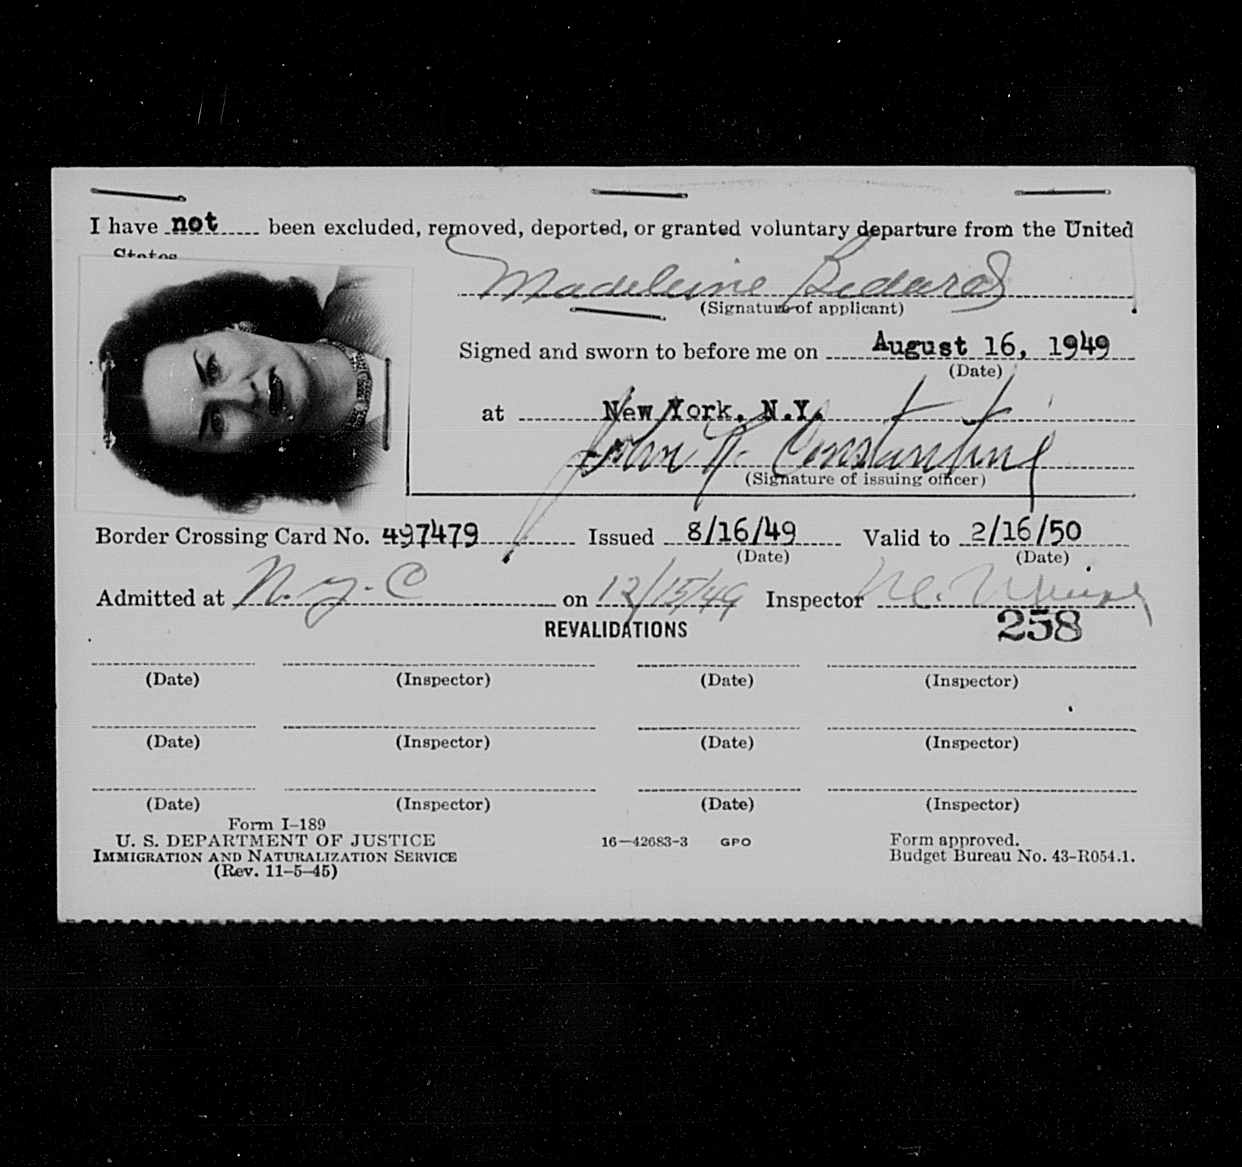 I have not been excluded, removed, deported, or granted voluntary departure from the United
States
Madeleine Bedard
(Signature of applicant)
Signed and sworn to before me on August 16, 1949
(Date)
at New York, N.Y.
John Constantine
(Signature of issuing officer)
Border Crossing Card No. 497479 Issued 8/16/49 Valid to 2/16/50
(Date) (Date)
Admitted at N.Y.C on 12/15/49 Inspector
REVALIDATIONS
258
(Date) (Inspector) (Date) (Inspector)
(Date) (Inspector) (Date) (Inspector)
(Date) (Inspector) (Date) (Inspector)
Form I-189
U. S. DEPARTMENT OF JUSTICE 16—42683-3 GPO Form approved.
IMMIGRATION AND NATURALIZATION SERVICE Budget Bureau No. 43-R054.1.
(Rev. 11-5-45)